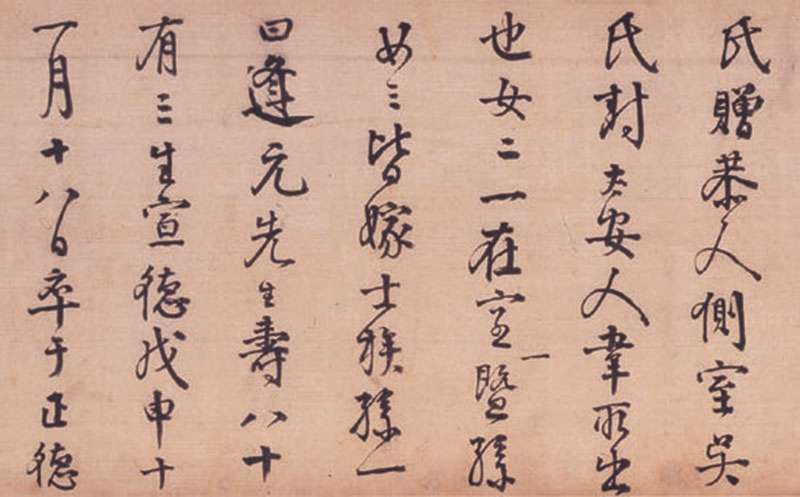 氏贈恭人側室吳
氏封太安人韋所出
也女二一在室一暨孫
女三皆嫁士族孫一
曰逢元先生壽八十
有三生宣德戊申十
一月十八日卒于正德